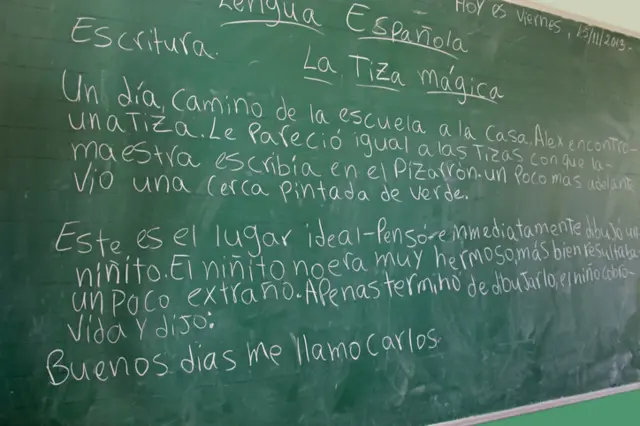 Lengua Española
Hoy es viernes, 15/11/2019.
Escritura.
La Tiza mágica
Un día, camino de la escuela a la casa, Alex encontro-
una Tiza. Le Pareció igual a las Tizas con que la-
maestra escribía en el Pizarrón. un Poco mas adelant
Vio una cerca Pintada de verde.
Este es el lugar ideal-Pensó-e inmediatamente dibujó un
niñito. El niñito no era muy hermoso, más bien resultaba
un Poco extraño. Apenas terminó de dibujarlo, el niño cobro-
Vida y dijo:
Buenos dias me llamo Carlos.